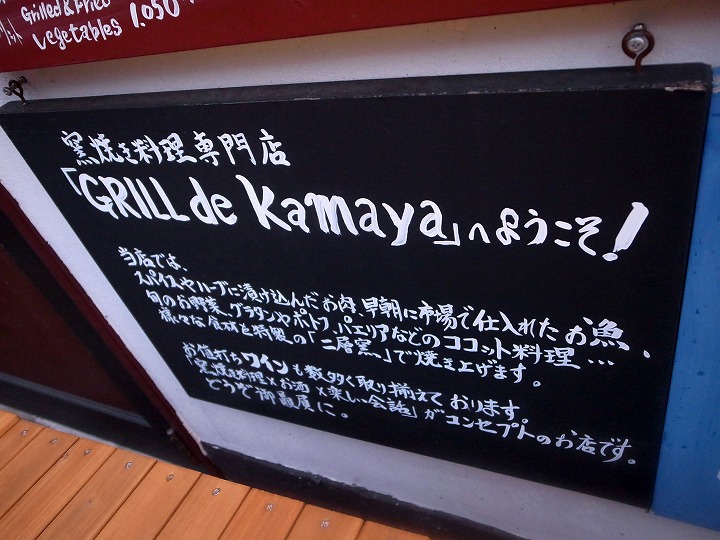 Grilled & Fried
vegetables 1,050
窯焼き料理専門店
「GRILL de Kamaya」へようこそ!
当店では、
スパイスやハーブに漬け込んだお肉、早朝に市場で仕入れたお魚、
旬のお野菜、グラタンやポトフ、パエリアなどのココット料理…
様々な食材を特製の「二層窯」で焼き上げます。
お値打ちワインも数多く取り揃えております。
「窯焼き料理×お酒×楽しい会話」がコンセプトのお店です。
どうぞ御贔屓に。